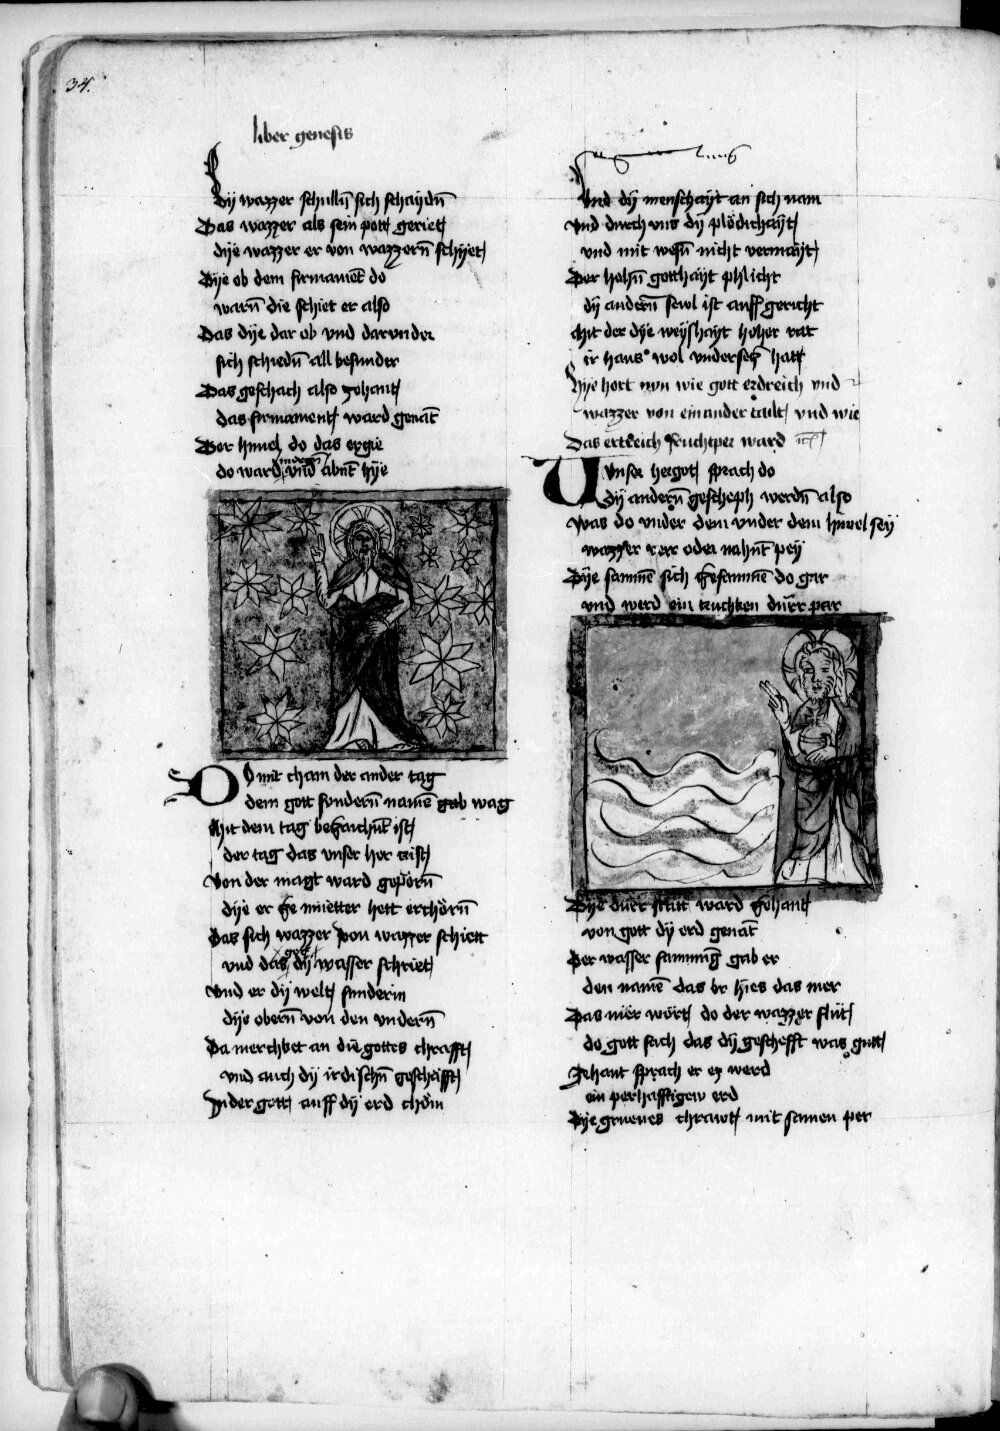 34.
liber genesis
Dij wazzer schullñ sich schaydñ
Das wazzer als sein pott geriet
dÿe wazzer er von wazzerñ schÿet
Dÿe ob dem firmamēt do
warñ die schiet er also
Das dÿe dar ob vnd darvnder
sich schiedñ all besunder
Das geschach also zehant
das firmament ward genāt
Der himel do das ergie
do ward morgñ vnd abñt hÿe
Do mit cham der ander tag
dem gott sunderñ namē gab wag
Mit dem tag beczaichñt ist
der tag das vnser her crist
Von der magt ward geporñ
dÿe er ze muetter hett erchörñ
Das sich wazzer von wazzer schiett
vnd das gott dÿ wasser schriet
Vnd er dÿ welt sunderin
dÿe oberñ von den vnderñ
Da merchet an die gottes chrafft
vnd auch dÿ irdischñ geschäfft
Jn der gott auff dÿ erd chöm
Vnd dÿ menschayt an sich nam
vnd durch vns dÿ plödichayt
vnd mit wesñ nicht vermayt
Der hohñ gotthayt phlicht
dÿ anderñ sewl ist auff gericht
Mit der dÿe weÿshayt hoher rat
ir haus wol vnderseczt hatt
Hÿe hort nun wie gott erdreich vnd
wazzer von einander tailt vnd wie
Das ertreich fruchtper ward
Vnser hergot sprach do
dÿ anderñ gescheph werdñ also
Was do vnder dem vnder dem himel seÿ
wazzer verr oder nahñt peÿ
Dÿe samñe sich gesamñe do gar
vnd werd ein truchken dürr par
Dÿe dürr stat ward zehant
von gott dÿ erd genāt
Der wasser samnūg gab er
den namē das er hies das mer
Das mer wört do der wazzer flüt
do gott sach das dÿ geschefft was gutt
Zehant sprach er ez werd
ein perhafftigew erd
Dÿe gruenes chrawt mit samen per